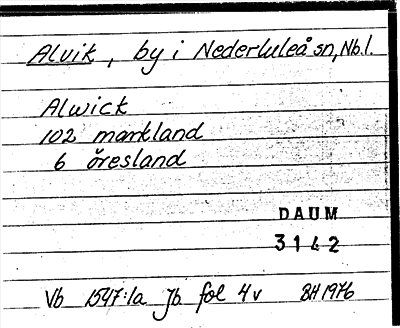 Alvik, by i Nederluleå sn, Nb.l.
Alwick
102 markland
6 öresland
DAUM
3142
Vb 1547:1a Jb fol 4v BH 1976